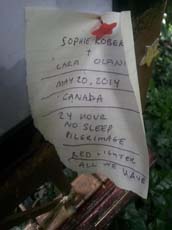 SOPHIE ROBER
+
LARA OLPAN
MAY 20, 2014
CANADA
24 HOUR
NO SLEEP
PILGRIMAGE
RED LIGHTER
ALL WE HAVE